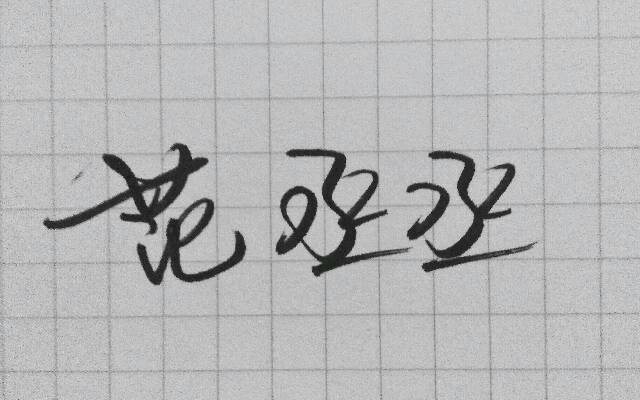 范丞丞